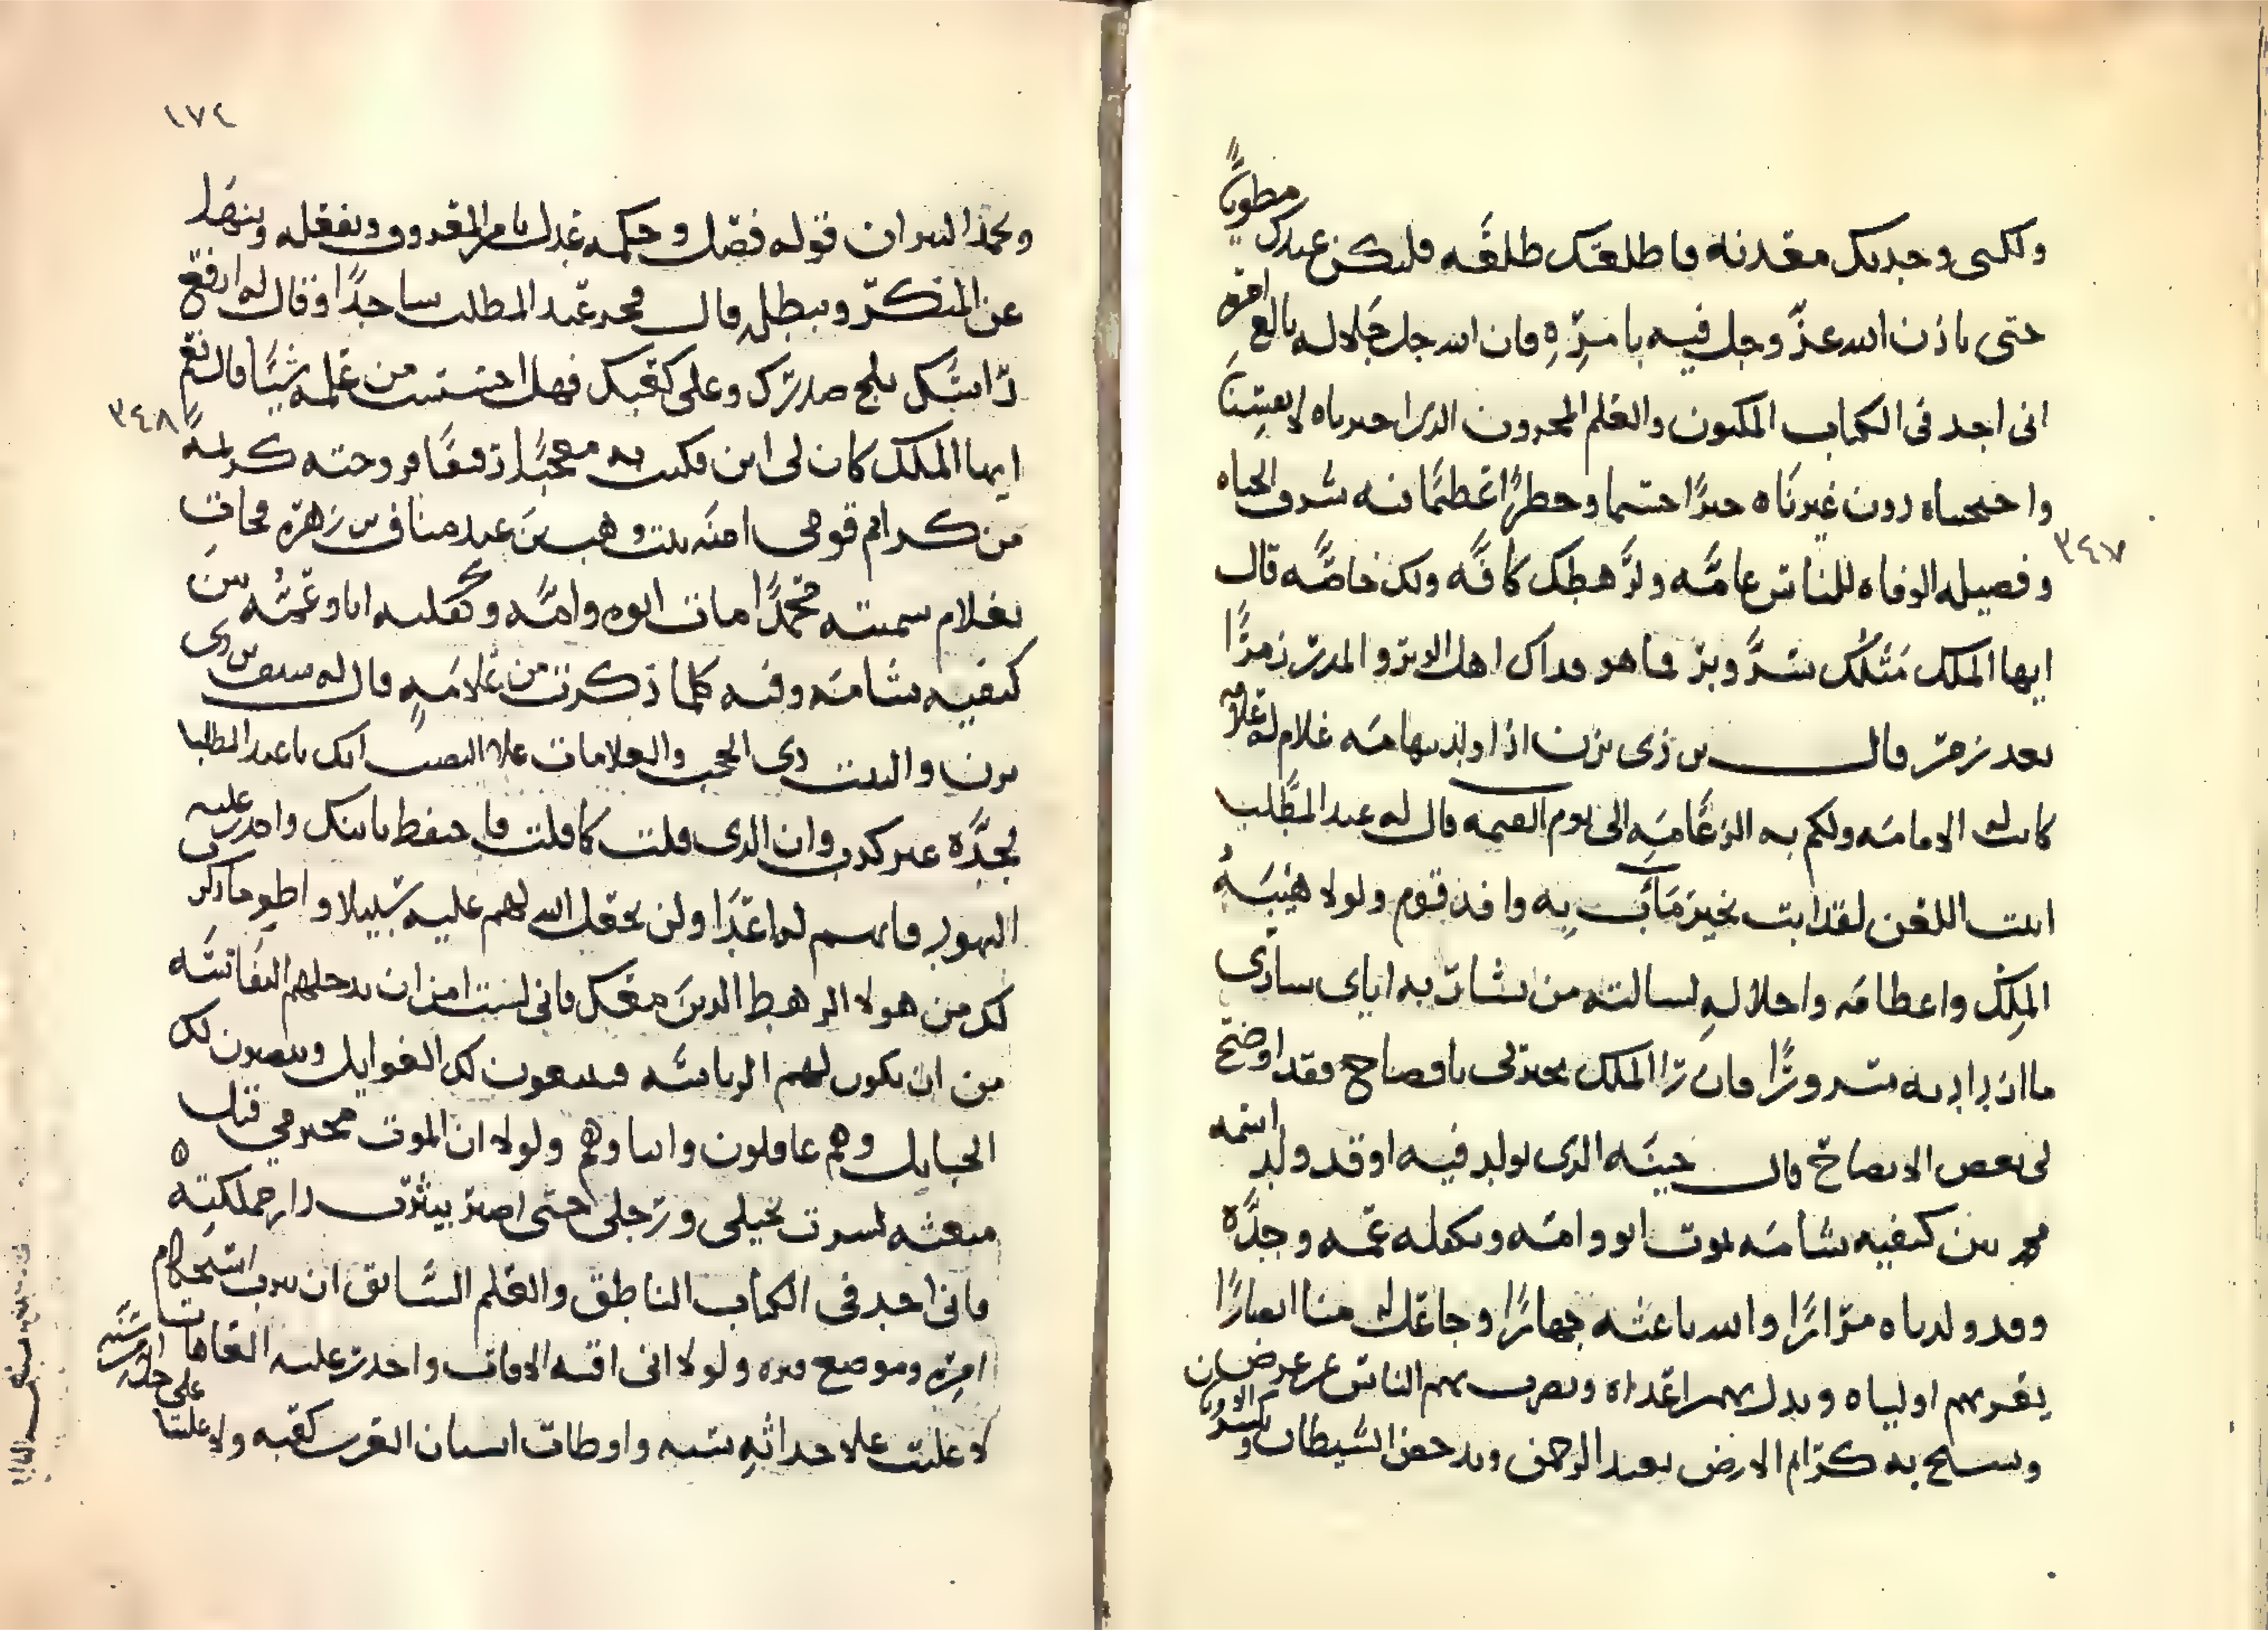 ولكنى وجدتك معدنه فاطلعتك طلعه فليكن عندك مطويا
حتى ياذن الله عز وجل فيه بامره فان الله جل جلاله بالغ امره
انى اجد فى الكتاب المكنون والعلم المخزون الذى اخترناه لانفسنا
واحتجبناه دون غيرنا خبرا جسيما وخطرا عظيما فيه شرف الحياه
٣٤٧
وفضيله الوفاه للناس عامه ولرهطك كافه ولك خاصه قال
ايها الملك مثلك سر وبر فما هو فداك اهل الوبر والمدر زمرا
بعد زمر قال بن ذى يزن اذا ولد بتهامه غلام له علامه
كانت له الامامه ولكم به الزعامه الى يوم القيمه قال له عبد المطلب
ابيت اللعن لقد ابت بخير ما اب به وافد قوم ولولا هيبه
الملك واعظامه واجلاله لسالته من بشارته اياى سارى
ما ازداد به سرورا فان را الملك يخبرنى بافصاح فقد اوضح
لى بعض الايضاح قال حينه الذى يولد فيه او قد ولد اسمه
محمد بين كتفيه شامه يموت ابوه وامه ويكفله عمه وجده
وقد ولدناه مرارا والله باعثه جهارا وجاعل له منا انصارا
يعز بهم اولياه ويذل بهم اعداه ويضرب بهم الناس عن عرض
ويستبيح به كرايم الارض يعبد الرحمن ويدحض الشيطان ويكسر الاوثان
١٧٤
ويخمد النيران قوله فصل وحكمه عدل يامر بالمعروف ويفعله وينها
عن المنكر ويبطله قال فخر عبد المطلب ساجدا وقال له ارفع
راسك ثلج صدرك وعلى كعبك فهل احسست من علمه شيئا قال نعم
٣٤٨
ايها الملك كان لى ابن فكنت به معجبا رفيقا فزوجته كريمه
من كرايم قومى امنه بنت وهب بن عبد مناف بن زهره فجات
بغلام سميته محمدا مات ابوه وامه وكفلته انا وعمه بين
كتفيه شامه وفيه كلما ذكرت من علامه قال له سيف بن ذى
يزن والبيت ذى الحجب والعلامات على النصب انك يا عبد المطلب
لجده غير كذب وان الذى قلت كما قلت فاحتفظ بابنك واحذر عليه
اليهود فانهم له اعدا ولن يجعل الله لهم عليه سبيلا واطو ما ذكرت
لك من هولا الرهط الذين معك فانى لست امن ان تدخلهم النفاسه
من ان يكون لهم الرياسه فيبغون لك الغوايل وينصبون لك
الحبايل وهم فاعلون وابناوهم ولولا ان الموت مجترمى قبل
مبعثه لسرت بخيلى ورجلى حتى اصير بيثرب دار مملكته
فانى اجد فى الكتاب الناطق والعلم السابق ان يثرب استحكام
امره وموضع قبره ولولا انى اقيه الافات واحذر عليه العاهات
لاعلنت على حداثه سنه واوطات اسنان العرب كعبه ولاعليت على حداثه سنه